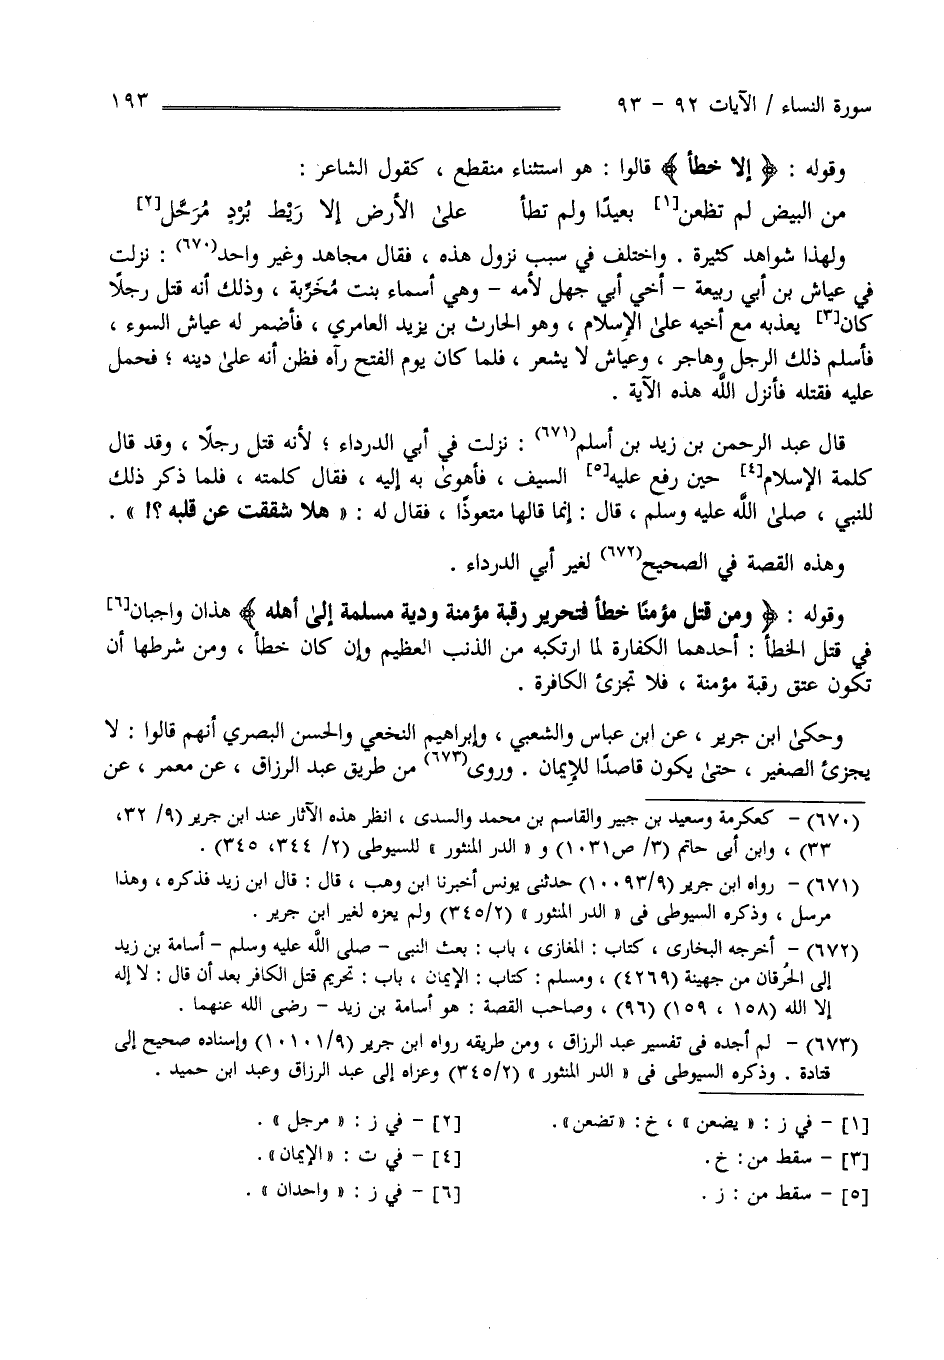 سورة النساء / الآيات ٩٢ - ٩٣ ١٩٣
وقوله : ﴿ إلا خطأ ﴾ قالوا : هو استثناء منقطع ، كقول الشاعر :
من البيض لم تظعن[١] بعيدًا ولم تطأ على الأرض إلا رَيْط بُرْدِ مُرَحَّل[٢]
ولهذا شواهد كثيرة . واختلف في سبب نزول هذه ، فقال مجاهد وغير واحد(٦٧٠) : نزلت
في عياش بن أبي ربيعة - أخي أبي جهل لأمه - وهي أسماء بنت مُخَرِّبة ، وذلك أنه قتل رجلًا
كان[٣] يعذبه مع أخيه على الإسلام ، وهو الحارث بن يزيد العامري ، فأضمر له عياش السوء ،
فأسلم ذلك الرجل وهاجر ، وعياش لا يشعر ، فلما كان يوم الفتح رآه فظن أنه على دينه ؛ فحمل
عليه فقتله فأنزل اللَّه هذه الآية .
قال عبد الرحمن بن زيد بن أسلم(٦٧١) : نزلت في أبي الدرداء ؛ لأنه قتل رجلًا ، وقد قال
كلمة الإسلام[٤] حين رفع عليه[٥] السيف ، فأهوى به إليه ، فقال كلمته ، فلما ذكر ذلك
للنبي ، صلى اللَّه عليه وسلم ، قال : إنما قالها متعوذًا ، فقال له : « هلا شققت عن قلبه ؟! » .
وهذه القصة في الصحيح(٦٧٢) لغير أبي الدرداء .
وقوله : ﴿ ومن قتل مؤمنًا خطأ فتحرير رقبة مؤمنة ودية مسلمة إلى أهله ﴾ هذان واجبان[٦]
في قتل الخطأ : أحدهما الكفارة لما ارتكبه من الذنب العظيم وإن كان خطأ ، ومن شرطها أن
تكون عتق رقبة مؤمنة ، فلا تجزئ الكافرة .
وحكى ابن جرير ، عن ابن عباس والشعبي ، وإبراهيم النخعي والحسن البصري أنهم قالوا : لا
يجزئ الصغير ، حتى يكون قاصدًا للإيمان . وروى(٦٧٣) من طريق عبد الرزاق ، عن معمر ، عن
(٦٧٠) - كعكرمة وسعيد بن جبير والقاسم بن محمد والسدى ، انظر هذه الآثار عند ابن جرير (٩/ ٣٢،
٣٣) ، وابن أبى حاتم (٣/ ص١٠٣١) و « الدر المنثور » للسيوطى (٢/ ٣٤٤، ٣٤٥) .
(٦٧١) - رواه ابن جرير (١٠٠٩٣/٩) حدثنى يونس أخبرنا ابن وهب ، قال : قال ابن زيد فذكره ، وهذا
مرسل ، وذكره السيوطى فى « الدر المنثور » (٣٤٥/٢) ولم يعزه لغير ابن جرير .
(٦٧٢) - أخرجه البخارى ، كتاب : المغازى ، باب : بعث النبى - صلى اللَّه عليه وسلم - أسامة بن زيد
إلى الحُرقان من جهينة (٤٢٦٩) ، ومسلم : كتاب : الإيمان ، باب : تحريم قتل الكافر بعد أن قال : لا إله
إلا الله (١٥٨ ، ١٥٩) (٩٦) ، وصاحب القصة : هو أسامة بن زيد - رضى الله عنهما .
(٦٧٣) - لم أجده فى تفسير عبد الرزاق ، ومن طريقه رواه ابن جرير (١٠١٠١/٩) وإسناده صحيح إلى
قتادة . وذكره السيوطى فى « الدر المنثور » (٣٤٥/٢) وعزاه إلى عبد الرزاق وعبد ابن حميد .
[١] - في ز : « يضعن » ، خ : «تضعن». [٢] - في ز : « مرجل » .
[٣] - سقط من: خ. [٤] - في ت : «الإيمان» .
[٥] - سقط من : ز . [٦] - في ز : « واحدان » .